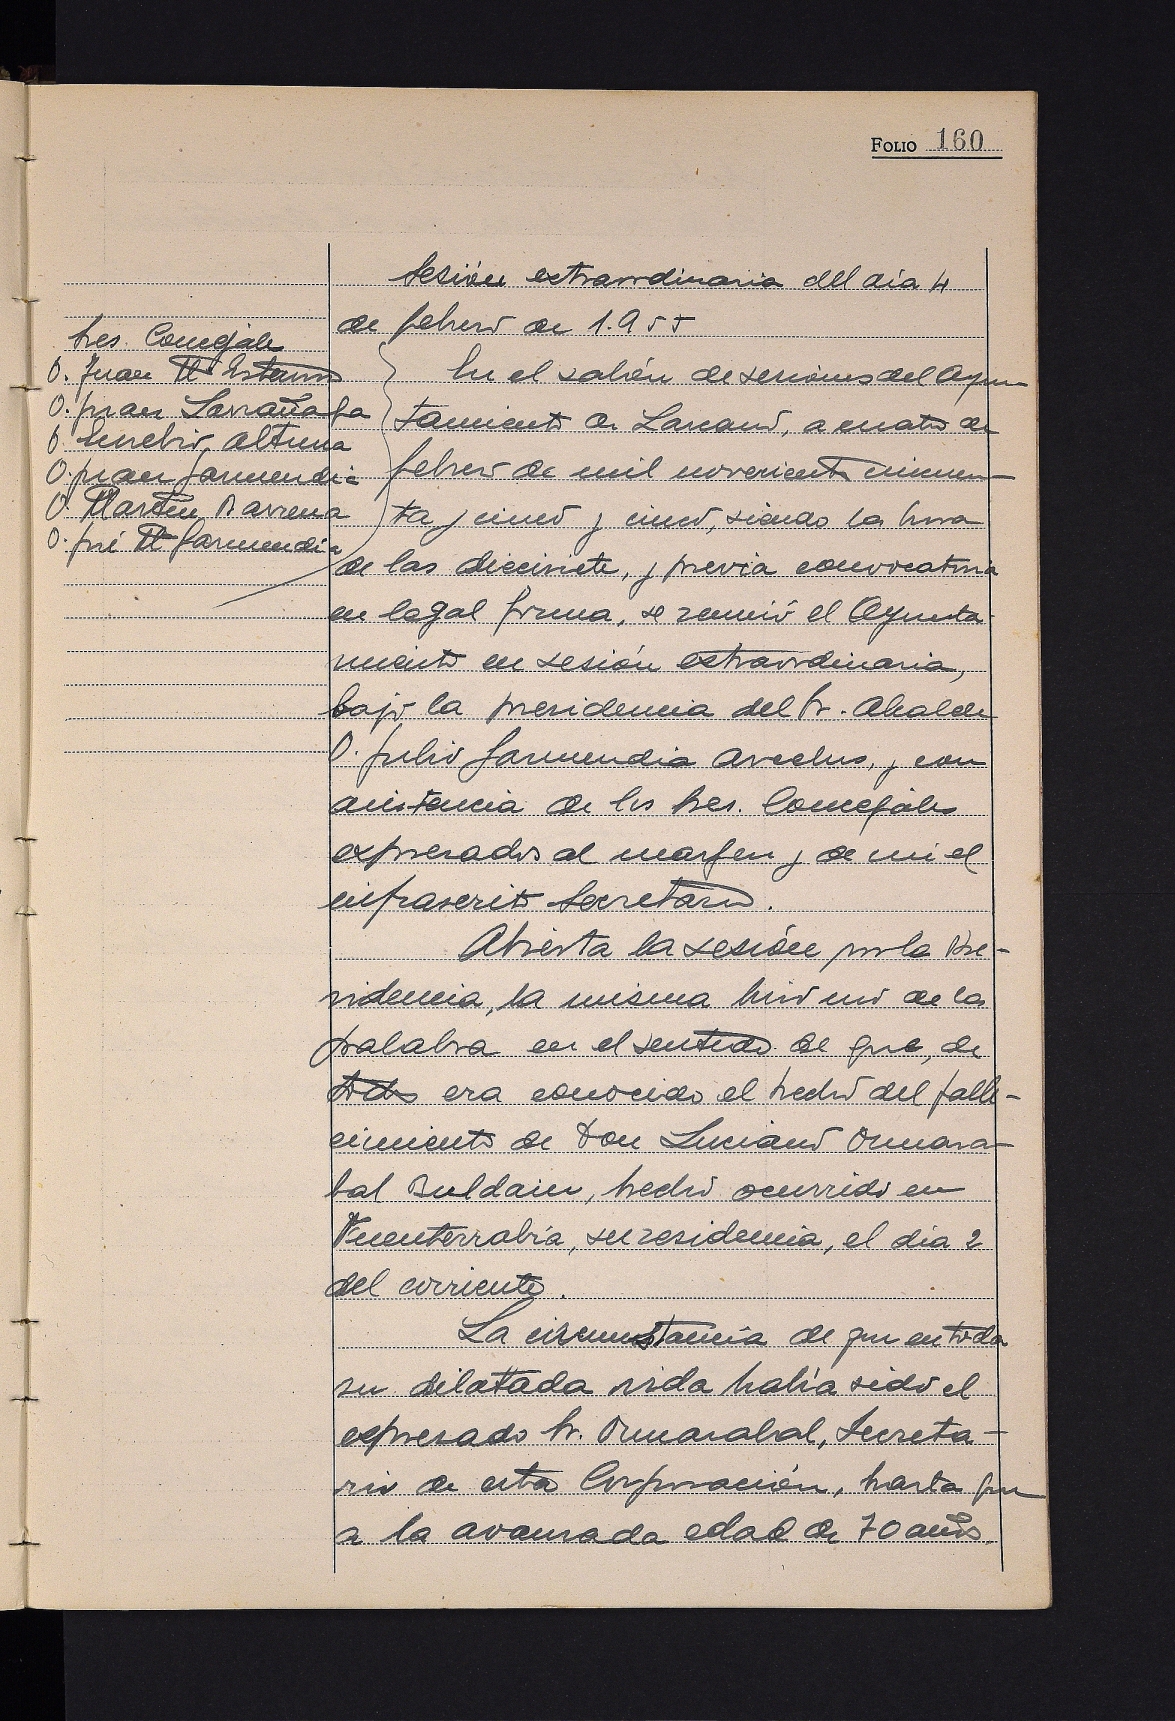 Folio 160
Sesión extraordinaria del día 4
de febrero de 1.955
Sres. Concejales
D. Juan Mª
D. Juan Larrañaga
D. Eusebio Altuna
D. Juan Garmendia
D. Martín Barrena
D. José Mª Garmendia
En el salón de sesiones del Ayun
tamiento de Lazcano, a cuatro de
febrero de mil novecientos cincuen
ta y cinco y cinco, siendo la hora
de las diecisiete, y previa convocatoria
en legal forma, se reunió el Ayunta
miento en sesión extraordinaria,
bajo la presidencia del Sr. Alcalde
D. Julio Garmendia Arcelus, y con
asistencia de los Sres. Concejales
expresados al margen y de mi el
infrascrito Secretario.
Abierta la sesión por la Pre-
sidencia, la misma hizo uso de la
palabra en el sentido de que, de
todos era conocido el hecho del falle-
cimiento de Don Luciano Ormaza-
bal Buldain, hecho ocurrido en
Fuenterrabía, su residencia, el día 2
del corriente.
La circunstancia de que en toda
su dilatada vida había sido el
expresado Sr. Ormazabal, Secreta-
rio de esta Corporación, hasta que
a la avanzada edad de 70 años